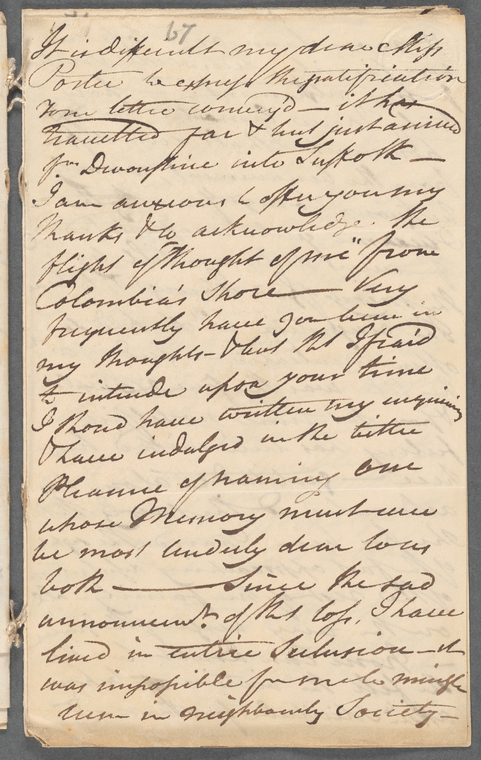 67
It is difficult my dear Miss
Porter to express the gratification
your letter convey'd – it has
travelled far & but just arrived
fm Devonshire into Suffolk –
I am anxious to offer you my
thanks & to acknowledge the
flight of "thought of me" from
Colombia's Shore – Very
frequently have you been in
my thoughts – & but tht I fear'd
to intrude upon your time
I shoud have written my enquiries
& have indulged in the bitter
Pleasure of naming One
whose Memory must ever
be most tenderly dear to us
both – Since the sad
announcemt. of tht loss, I have
lived in entire Seclusion – it
was impossible for me to mingle
even in neighbourly Society –